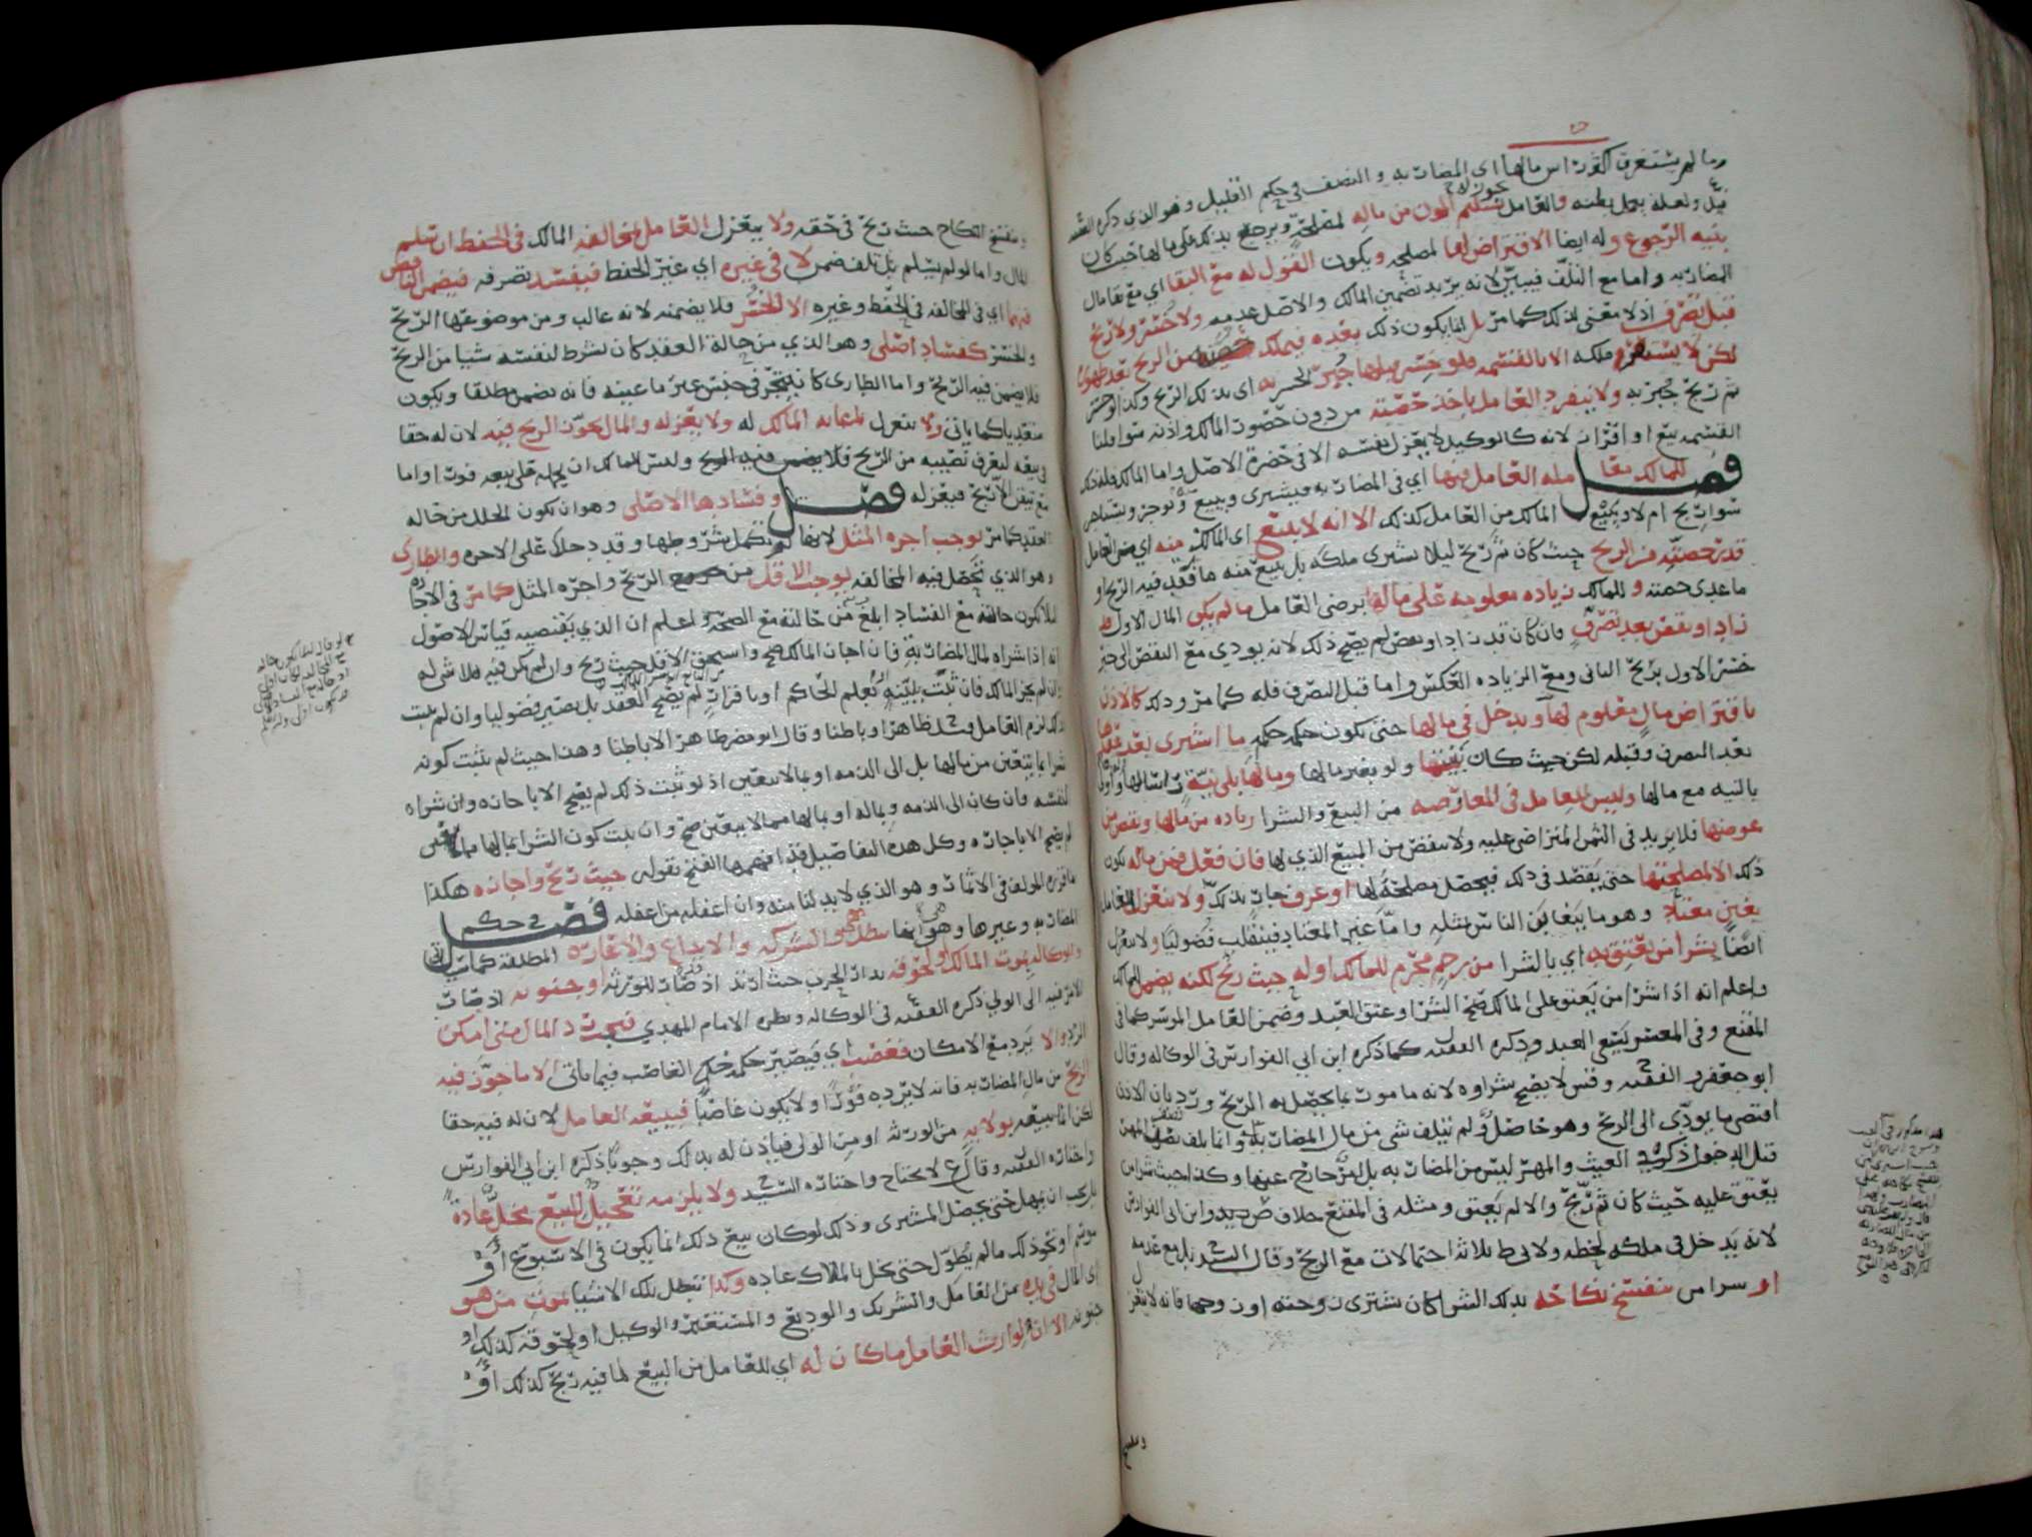 وما لم يستغرق اكثر راس مالها اي المضاربه والنصف في حكم القليل وهو الذي ذكره الفقيه
ولعله يعمل بظنه والعامل تسليم المون من ماله لمصلحة ويرجع بذلك على مالها حيث كان
بنية الرجوع وله ايضا الاقتراض لها لمصلحه ويكون القول له مع البقا اي مع بقا مال
المضاربه واما مع التلف فيبين لانه يريد تضمين المالك والاصل عدمه ولا خسر ولا ربح
قبل تصرف اذ لا معنى لذلك كما مر بل انما يكون ذلك بعده فيملك حصته من الربح بعد ظهوره
لكن لا يستقر ملكه الا بالقسمه فلو خسر قبلها جبر الخسر به اي بذلك الربح وكذا لو خسر
ثم ربح جبر به ولا ينفرد العامل باخذ حصته من دون حضور المالك واذنه سوا قلنا
القسمه بيع او افراز لانه كالوكيل لا يعزل نفسه الا في حضرة الاصل واما المالك فله ذلك
فصل للمالك معا ملة العامل فيها اي في المضاربه فيشتري ويبيع ويوجر ويستاجر
سوا ربح ام لا ويبيع المالك من العامل كذلك الا انه لا يبيع اي المالك منه اي من العامل
قدر حصته من الربح حيث كان ثم ربح ليلا يشتري ملكه بل يبيع منه ما فقد فيه الربح او
ما عدى حصته وللمالك زياده معلومه على مالها برضى العامل ما لم يكن المال الاول قد
زاد او نقص بعد تصرف فان كان قد زاد او نقص لم يصح ذلك لانه يودي مع النقص الى جبر
خسر الاول بربح الثاني ومع الزياده العكس واما قبل التصرف فله كما مر وذلك كالاذن
باقتراض مال معلوم لها ويدخل في مالها حتى يكون حكمه حكمه ما اشترى بعد عقدها
بعد التصرف وقبله لكن حيث كان بنيتها ولو بغير مالها وبمالها بلى نية
بالنيه مع مالها وليس للعامل في المعاوضه من البيع والشرا زياده من مالها ونقص من
عوضها فلا يزيد في الثمن المتراضى عليه ولا ينقص من المبيع الذي لها فان فعل فمن ماله يكون
ذلك الا لمصلحتها حتى يقصد في ذلك فيحصل مصلحة لها او عرف جار بذلك ولا ينعزل العامل
بغبن معتاد وهو ما يتغابن الناس بمثله واما غير المعتاد فينقلب فضوليا ولا ينعزل
ايضا بشرا من يعتق به اي بالشرا من رحم محرم للمالك او له حيث ربح لكنه يضمن للمالك
واعلم انه اذا شرا من يعتق على المالك صح الشرا وعتق العبد وضمن العامل الموسر كما في
المقنع وفي المعسر يسعى العبد وذكره الفقيه كما ذكره ابن ابي الفوارس في الوكاله وقال
ابو جعفر والفقيه وقس لا يصح شراوه لانه مامور بما يحصل به الربح ورد بان الاذن
اقتضى ما يودي الى الربح وهو حاصل ولم يتلف شي من مال المضاربه وانما تلف نصف المهر
قبل الدخول ذكره العيث والمهر ليس من المضاربه بل امر خارج عنها وكذا حيث شرا من
يعتق عليه حيث كان ثم ربح والا لم يعتق ومثله في المقنع خلاف ص بيد وابن ابي الفوارس
لانه يدخل في ملكه لحظه ولابي ط ثلاثة احتمالات مع الربح وقال السيد بل مع عدمه
او شرا من ينفسخ نكاحه بذلك الشرا كان يشتري زوجته او زوجها فانه لا ينعزل
وينفسخ
وينفسخ النكاح حيث ربح في حقه ولا ينعزل العامل بمخالفه المالك في الحفظ ان سلم
المال واما لو لم يسلم بل تلف ضمن لا في غيره اي غير الحفظ فيفسد تصرفه فيضمن الناقص
فيهما اي في المخالفه في الحفظ وغيره الا الخسر فلا يضمنه لانه غالب ومن موضوعها الربح
والخسر كفساد اصلي وهو الذي من حالة العقد كان شرط لنفسه شيا من الربح
فلا يضمن فيه الربح واما الطاري كان يتجر في جنس غير ما عينه فانه يضمن مطلقا ويكون
متعديا كما ياتي ولا ينعزل بمعانه المالك له ولا بعزله والمال يجوز الربح فيه لان له حقا
في بيعه ليعرف نصيبه من الربح وليس للمالك ان يحمله على بيعه فورا واما
مع تيقن لا ربح فيعزله فصل وفسادها الاصلي وهو ان يكون الخلل من حاله
العقد كما مر يوجب اجره المثل لانها لم تكمل شروطها وقد دخلا على الاجره والطاري
وهو الذي تحصل فيه المخالفه يوجب الاقل من الربح واجره المثل كما مر في الاجاره
ليلا يكون حاله مع الفساد ابلغ من حالته مع الصحة واعلم ان الذي يقتضيه قياس الاصول
انه اذا شراه لمال المضاربه فان اجاز المالك صح واستحق الاقل حيث ربح وان لم يكن فيه فلا شي له
وان لم يجز المالك فان ثبت ببينة او بعلم الحاكم او باقرار لم يصح العقد بل يصير فضوليا وان لم يثبت
ذلك لزم العامل ظاهرا وباطنا وقال ابو مضر ظاهرا لا باطنا وهذا حيث لم يثبت كونه
شرا بما يتعين من مالها بل الى الذمه او بما لا يتعين اذ لو ثبت ذلك لم يصح الا باجازه وان شراه
لنفسه فان كان الى الذمه وبماله او بمالها مما لا يتعين صح وان ثبت كون الشرا بمالها مما يتعين
لم يصح الا باجازه وكل هذه التفاصيل قد افهمها الفتح بقوله حيث ربح واجازه هكذا
ما قرره المولف في الاثمار وهو الذي لا بد لنا منه وان اغفله من اغفله فصل في حكم
المضاربه وغيرها وهو انها تبطل هي والشركه والايداع والاعاره المطلقه كما سياتي
والوكاله بموت المالك ولحوقه بدار الحرب حيث ارتد اذ صار للورثه او جنونه اذ صار
الامر فيه الى الولي ذكره الفقيه في الوكاله ونظره الامام المهدي فيجب رد المال متى امكن
الرد والا يرد مع الامكان فغصب اي فيصير حكمه حكم الغاصب فيما ياتي الا ما جوز فيه
الربح من مال المضاربه فانه لا يرده فورا ولا يكون غاصبا فيبيعه العامل لان له فيه حقا
لكن انما يبيعه بولايه من الورثه او من الولي فياذن له بذلك وجوبا ذكره ابن ابي الفوارس
واختاره الفقيه وقال ع لا يحتاج واختاره السيد ولا يلزمه تعجيل البيع بخل عادة
بل يجب ان يمهل حتى يحصل المشتري وذلك لو كان بيع ذلك انما يكون في الاسبوع او
موسم او نحو ذلك ما لم يطول حتى يخل بالملاك عاده وكذا تبطل تلك الاشيا بموت من هو
اي المال في يده من العامل والشريك والوديع والمستعير والوكيل او لحوقه كذلك او
جنونه الا ان لوارث العامل ما كان له اي للعامل من البيع لما فيه ربح كذلك او